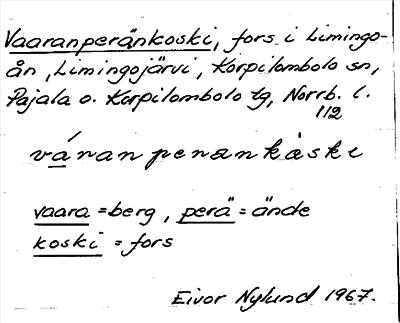 Vaaranperänkoski, fors i Limingo-
ån, Limingojärvi, Korpilombolo sn,
Pajala o. Korpilombolo tg, Norrb. l.
112
váranperankåski
vaara = berg, perä = ände
koski = fors
Eivor Nylund 1967.